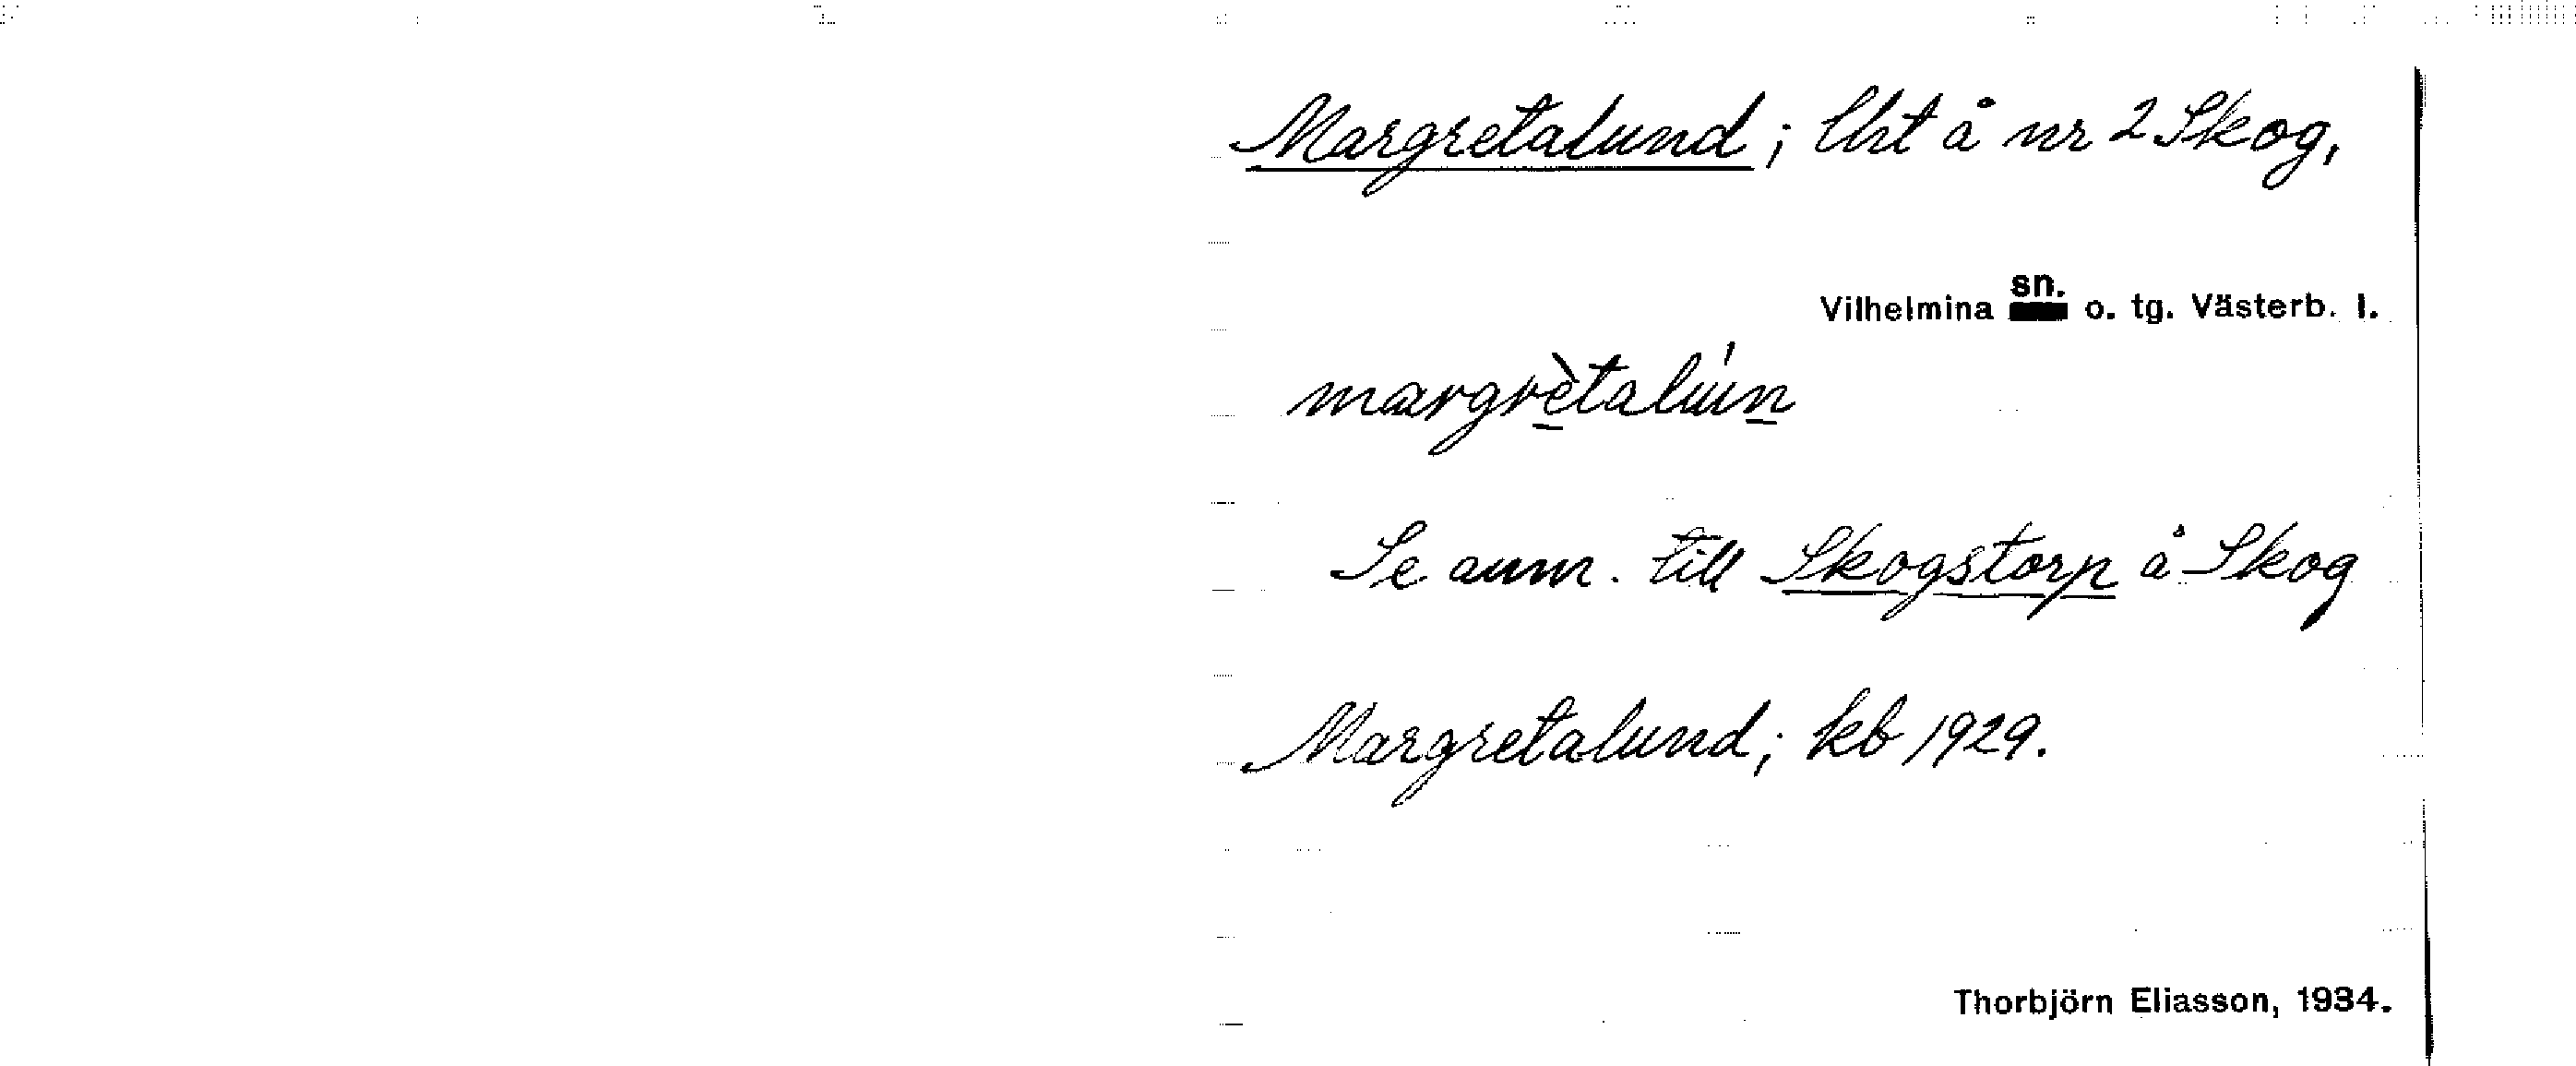 Margretalund; Lht å nr 2 Skog,
Vilhelmina sn. o. tg. Västerb. l.
margrètalún
Se anm. till Skogstorp å Skog
Margretalund; kb 1929.
Thorbjörn Eliasson, 1934.